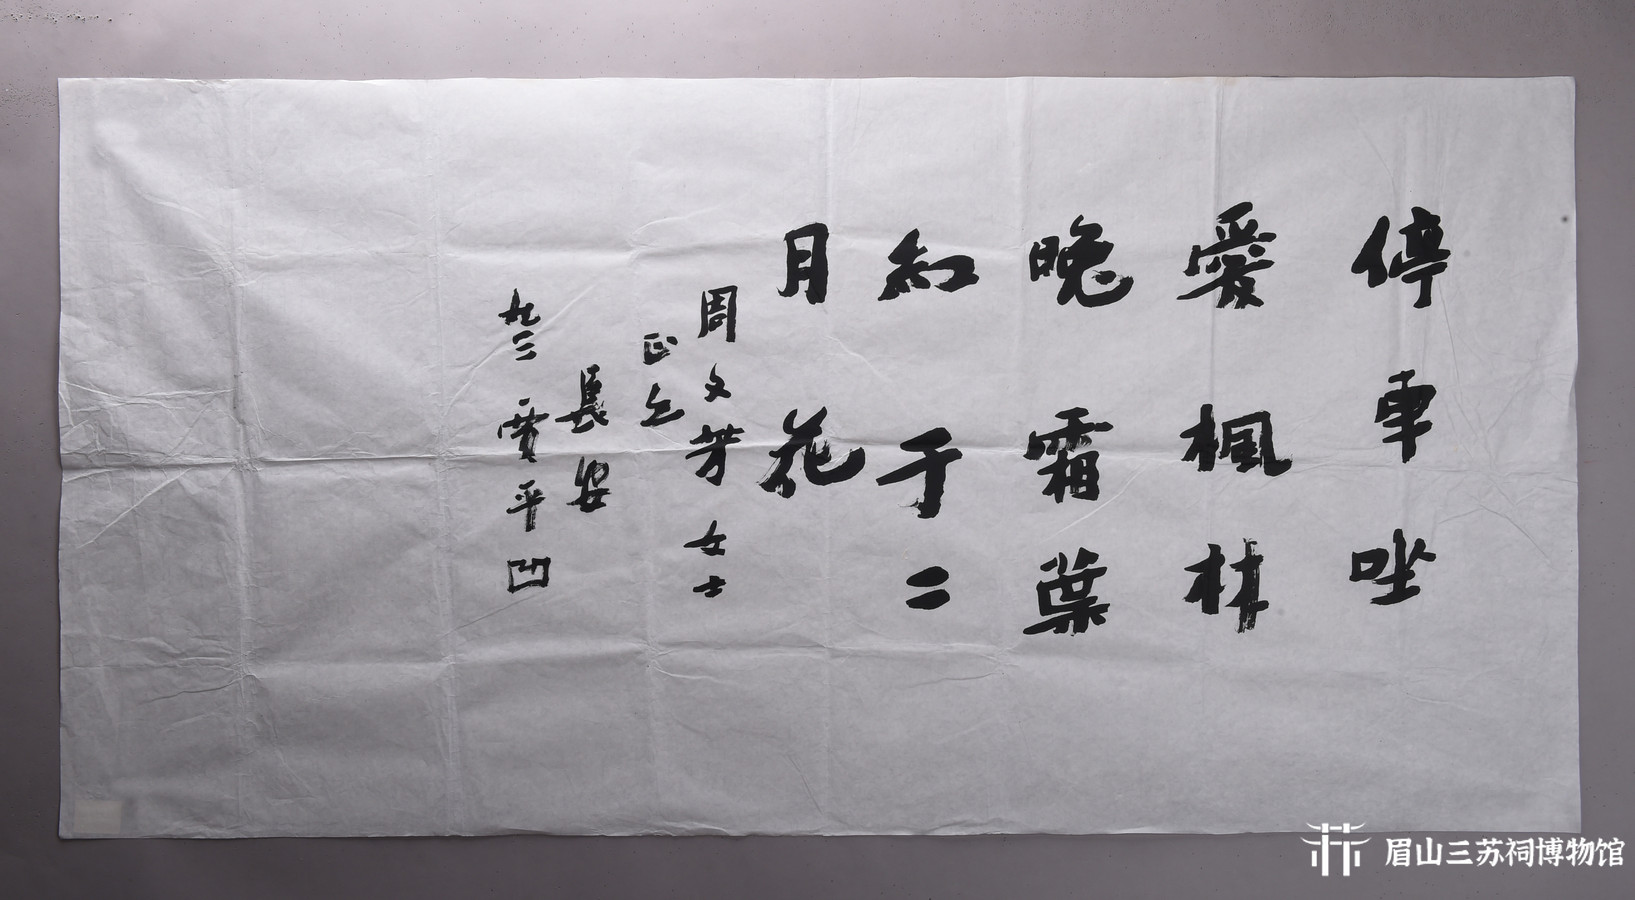 停車坐
愛楓林
晚霜葉
紅于二
月花
周文芳女士
正之
長安
九三 賈平凹
眉山三苏祠博物馆